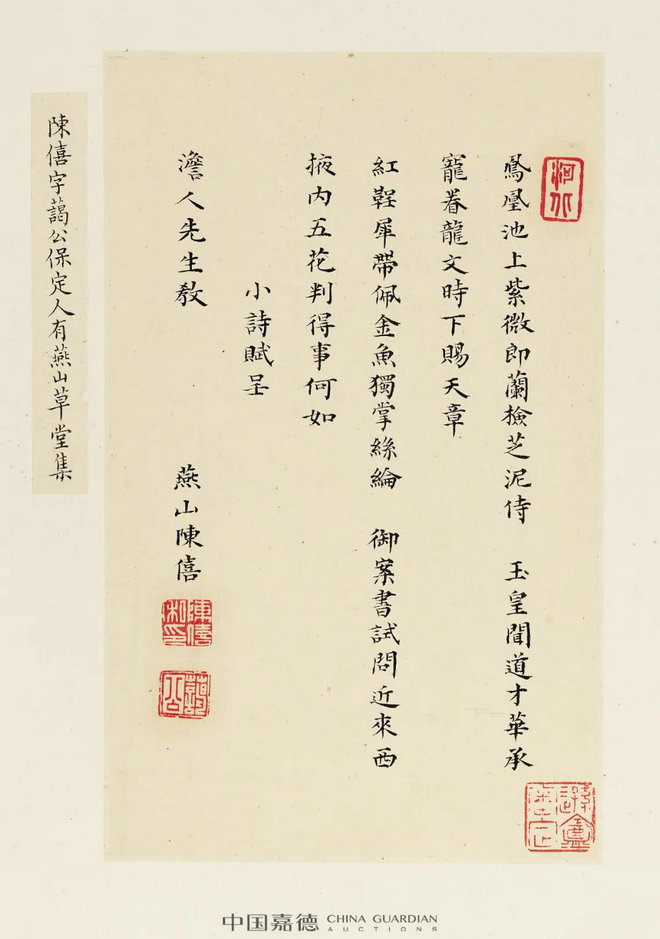 鳳凰池上紫微郎蘭檢芝泥侍 玉皇聞道才華承
寵眷龍文時下賜天章
紅鞓犀帶佩金魚獨掌絲綸 御案書試問近來西
掖內五花判得事何如
小詩賦呈
澹人先生教
燕山陳僖
陳僖私印
藹公
陳僖字藹公保定人有燕山草堂集
中国嘉德 CHINA GUARDIAN
AUCTIONS